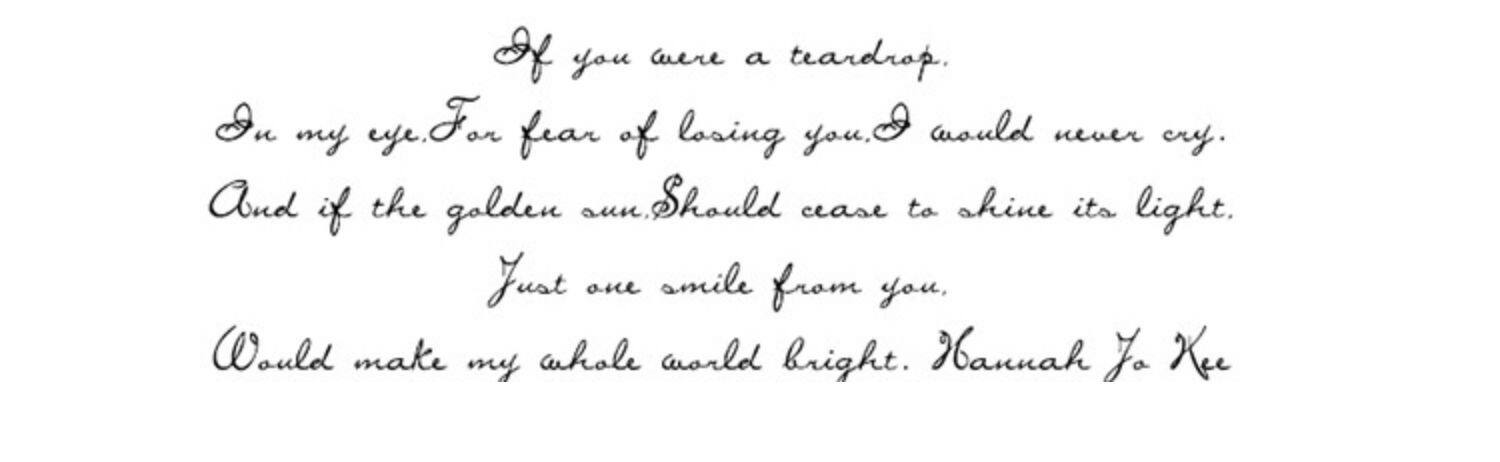 If you were a teardrop.
In my eye.For fear of losing you.I would never cry.
And if the golden sun.Should cease to shine its light.
Just one smile from you.
Would make my whole world bright. Hannah Jo Kee